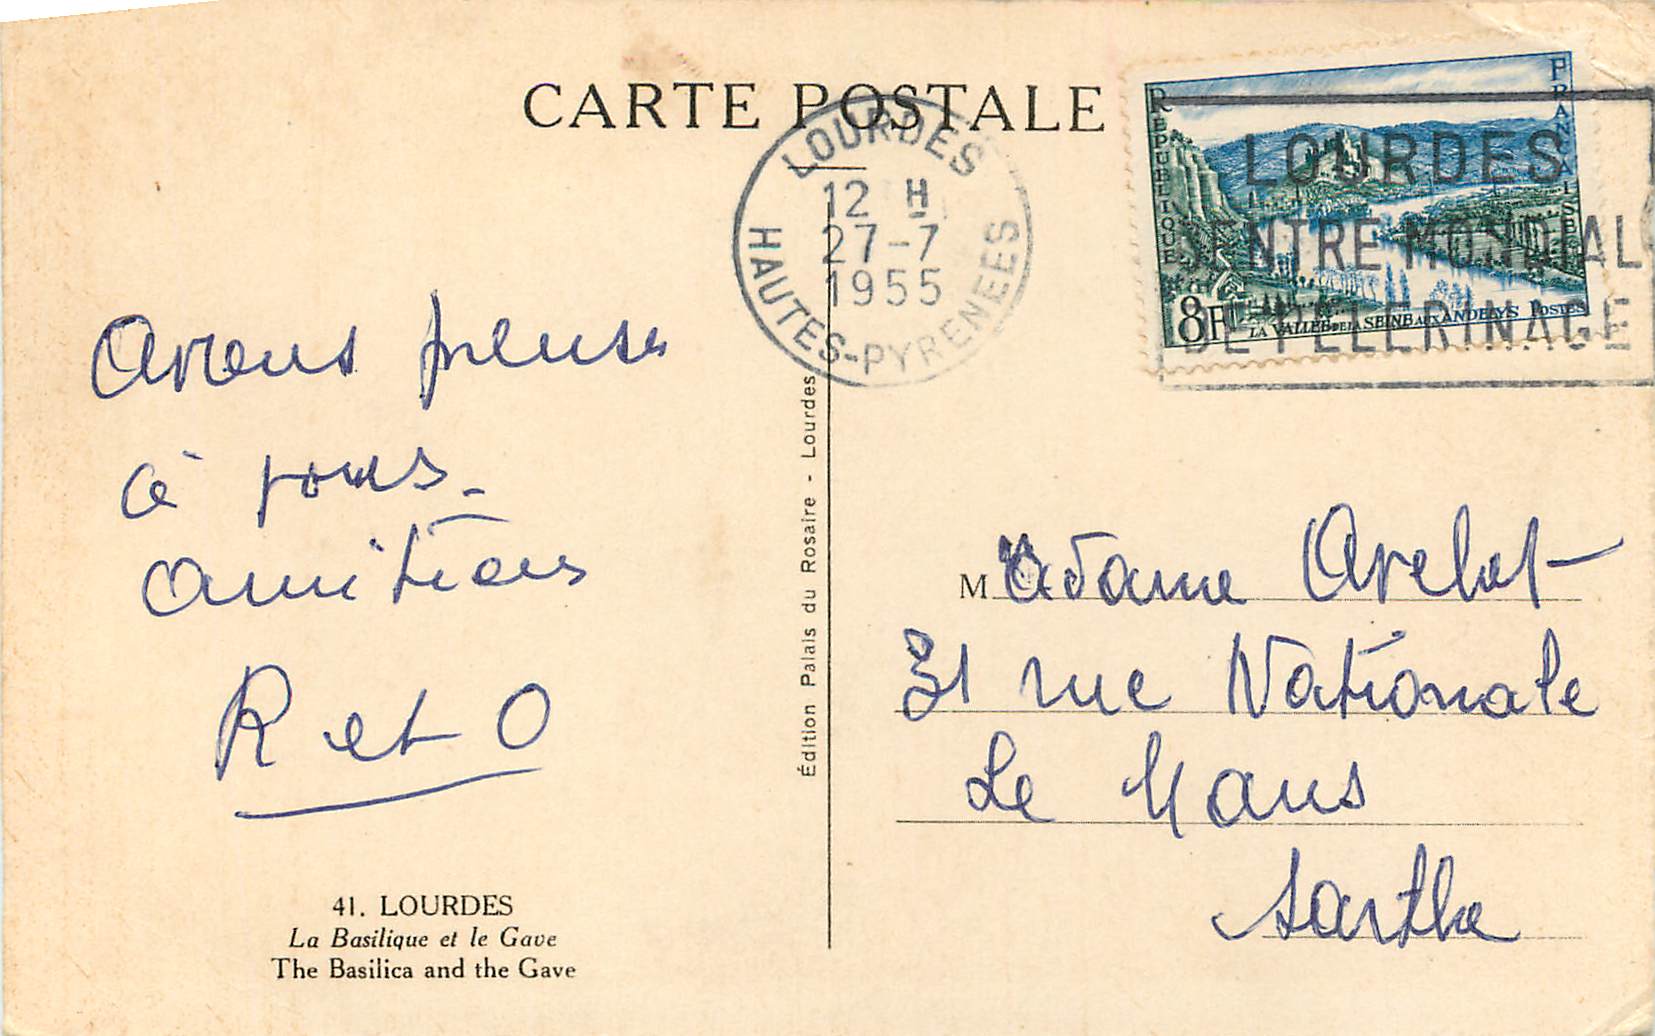 CARTE POSTALE
LOURDES
12 H
27-7
1955
HAUTES-PYRENEES
REPUBLIQUE FRANÇAISE
8F LA VALLÉE DE LA SEINE AUX ANDELYS POSTES
LOURDES
CENTRE MONDIAL
DE PELERINAGE
Avons pensé
à vous
Amitiés
R et O
41. LOURDES
La Basilique et le Gave
The Basilica and the Gave
Édition Palais du Rosaire - Lourdes
Madame
31 rue Nationale
Le Mans
Sarthe